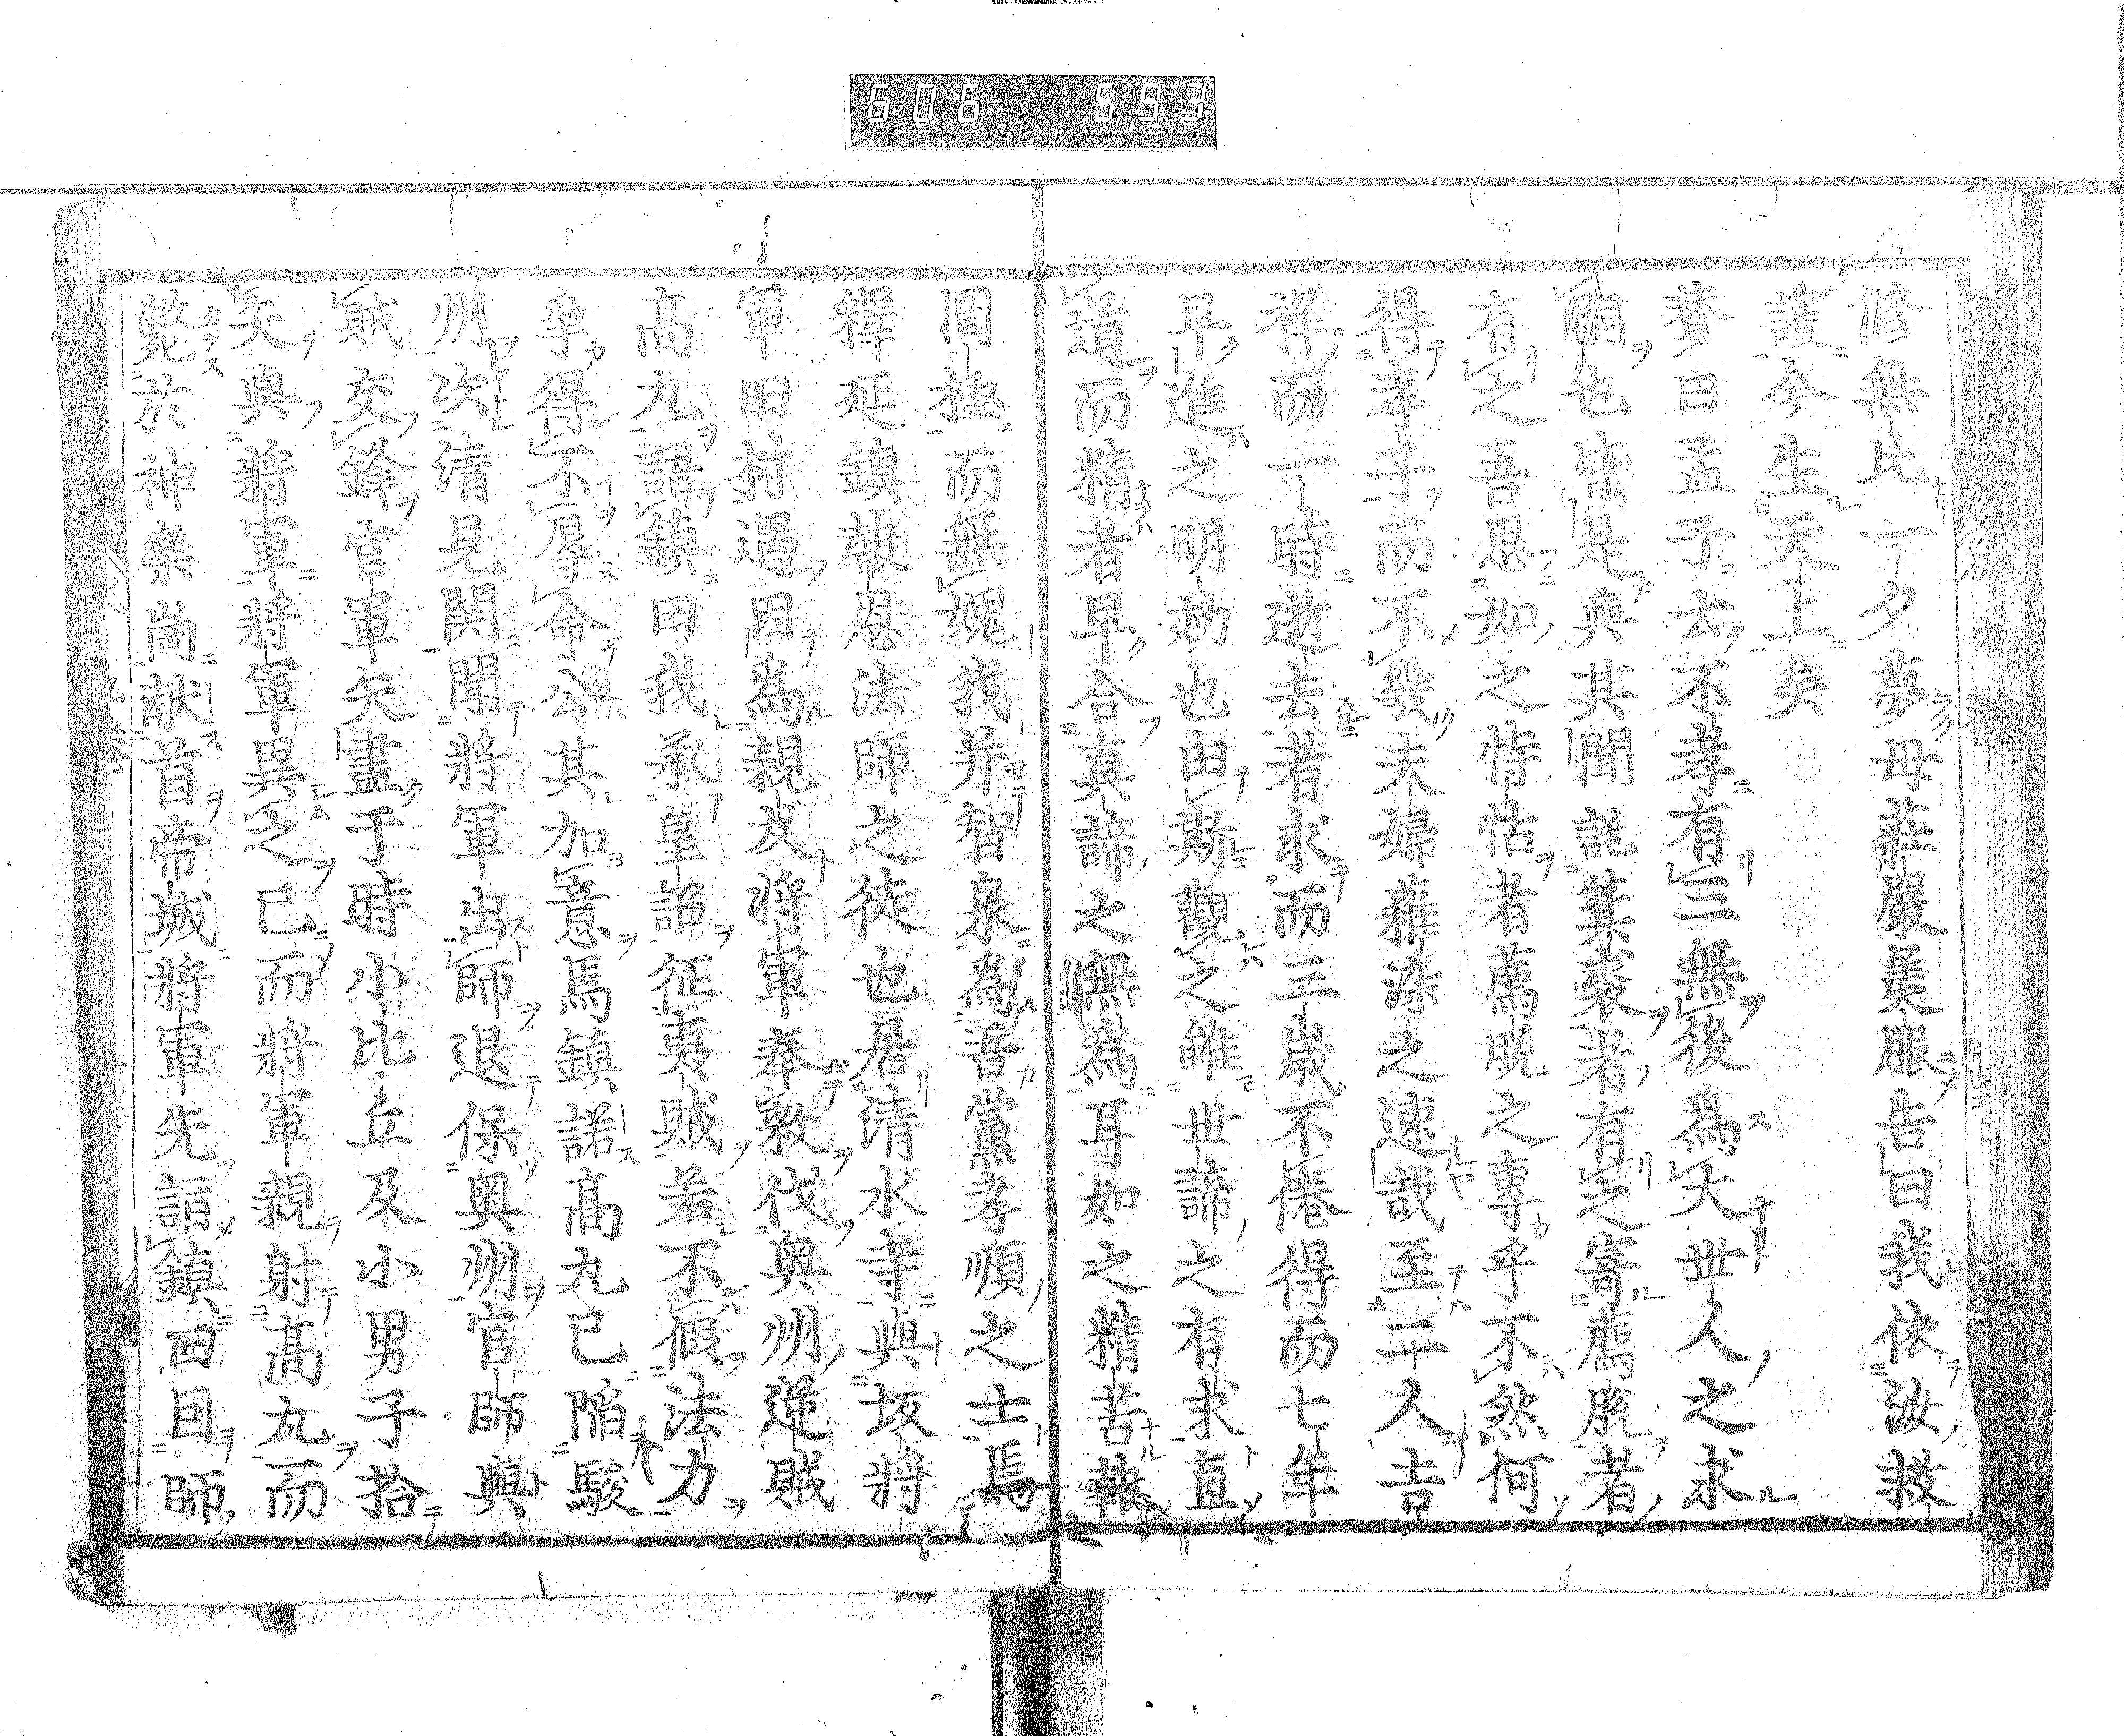 606 593
修無比一夕夢母莊嚴美服告曰我依汝救
護今生天上矣
賛曰孟子云不孝有三無後為大世人之求
嗣也皆是與其間託箕裘者有之寄薦脱者
有之吾思如之恃怙者薦脱之專乎不然何
得孝子而不幾夫婦薙染之速哉至二人吉
祥而一時逝去者求而三歳不倦得而七年
早進之明効也由斯觀之雖世諦之有求直
道而精者早合真諦之無為耳如之精苦
罔極而無媿我并智泉為吾黨孝順之士焉
釋延鎮報恩法師之徒也居清水寺與坂将
軍田村遇因為親友将軍奉敕伐奥州逆賊
高丸語鎮曰我承皇詔征夷賊若不假法力
爭得不辱命公其加意焉鎮諾高丸已陷駿
州次清見関聞将軍出師退保奥州官師與
賊交鋒官軍矢盡于時小比丘及小男子拾
矢與将軍将軍異之已而将軍親射高丸而
斃於神樂岡献首帝城将軍先詣鎮曰因師